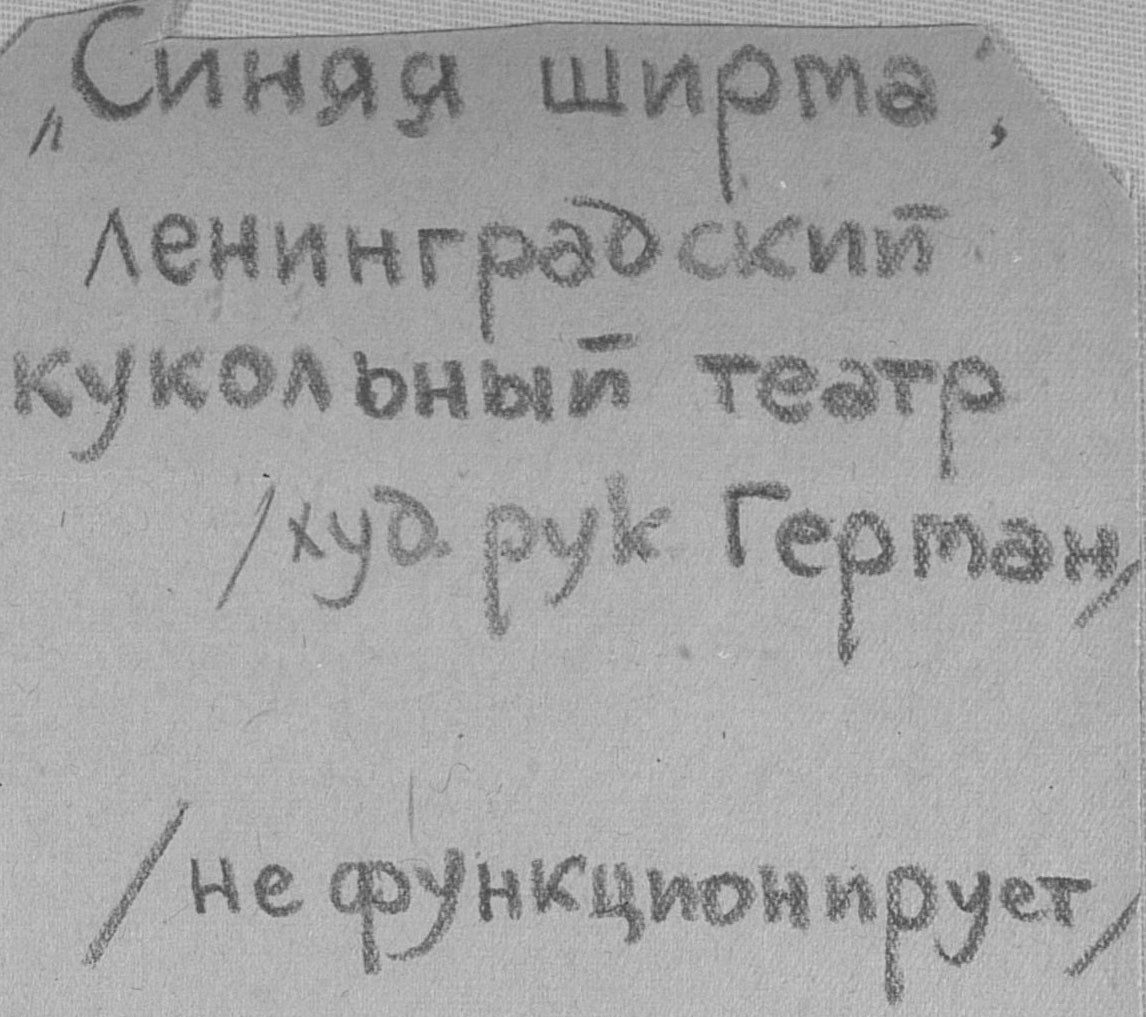 „Синяя ширма",
ленинградский
кукольный театр
/худ. рук Герман/
/не функционирует/